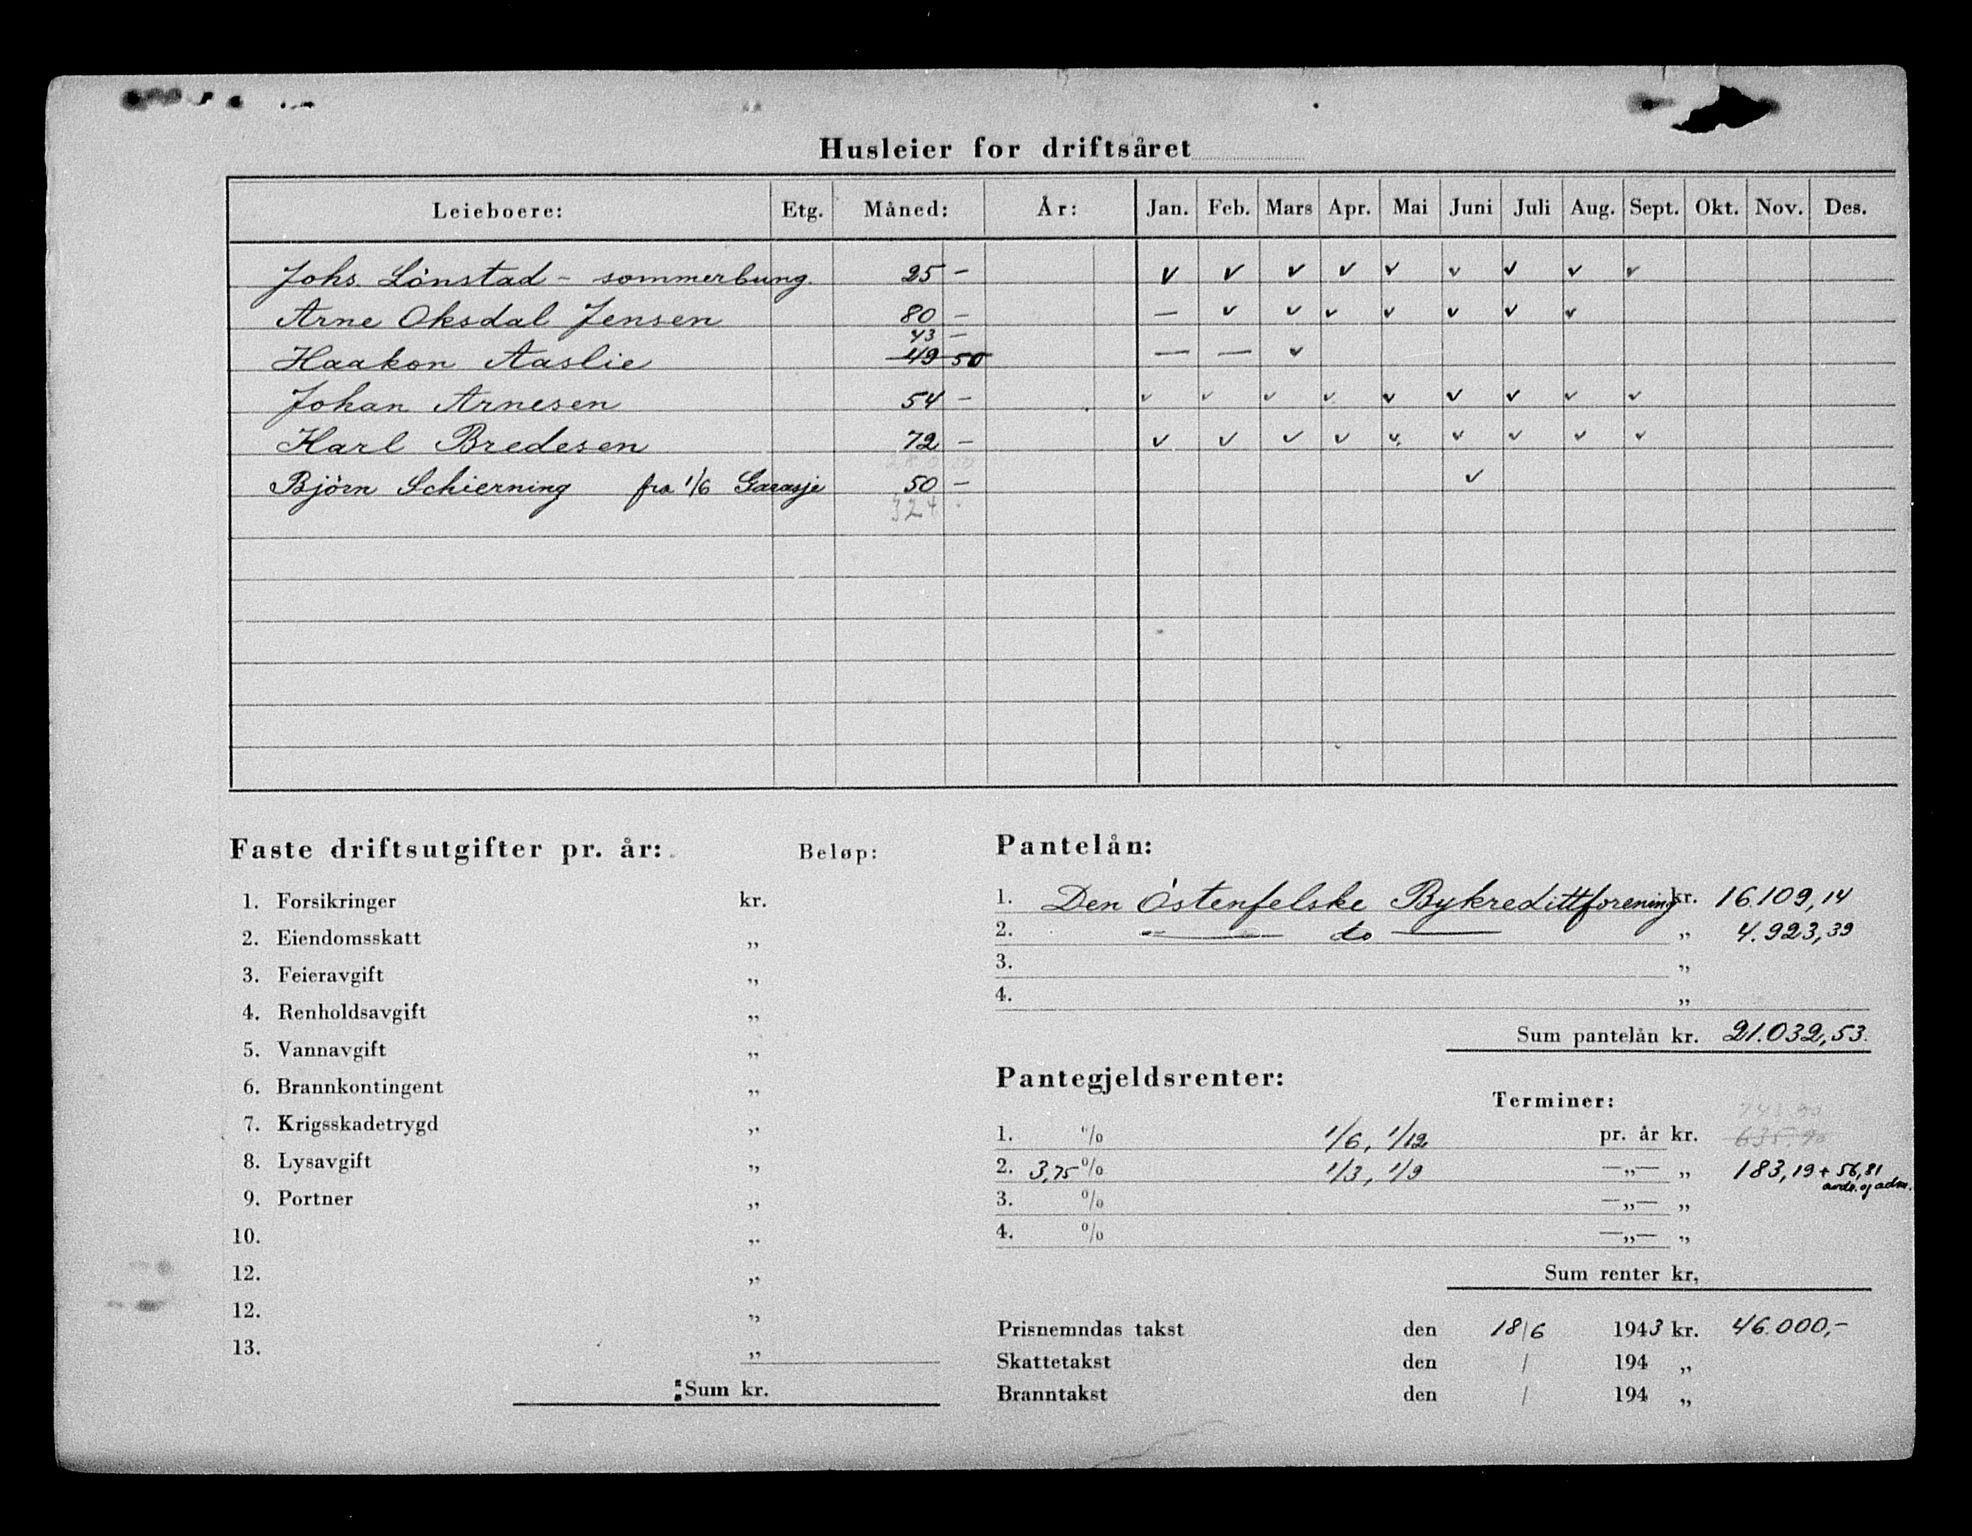 Husleier for driftsåret
Leieboere: Etg. Måned: År: Jan. Feb. Mars Apr. Mai Juni Juli Aug. Sept. Okt. Nov. Des.
Johs. Lönstad - sommerbung. 25 - v v v v v v v v v
Arne Oksdal Jensen 80 - — v v v v v v v
43 -
Haakon Aaslie 49 50 — — v
Johan Arnesen 54 - v v v v v v v v v
Karl Bredesen 72 - v v v v v v v v v
Björn Schierning fra 1/6 Garasje 50 - v
324 -
Faste driftsutgifter pr. år: Beløp:
1. Forsikringer kr.
2. Eiendomsskatt „
3. Feieravgift „
4. Renholdsavgift „
5. Vannavgift „
6. Brannkontingent „
7. Krigsskadetrygd „
8. Lysavgift „
9. Portner „
10. „
12. „
12. „
13. „
Sum kr.
Pantelån:
1. Den Östenfelske Bykredittforening kr. 16.109,14
2. — do — „ 4.923,39
3. „
4. „
Sum pantelån kr. 21.032,53.
Pantegjeldsrenter:
Terminer:
743.90
1. % 1/6, 1/12 pr. år kr. 635.90
2. 3,75 % 1/3, 1/9 —„— „ 183,19 + 56,81
avdr. og adm.
3. % —„— „
4. % —„— „
Sum renter kr,
Prisnemndas takst den 18/6 1943 kr. 46.000,-
Skattetakst den / 194 „
Branntakst den / 194 „